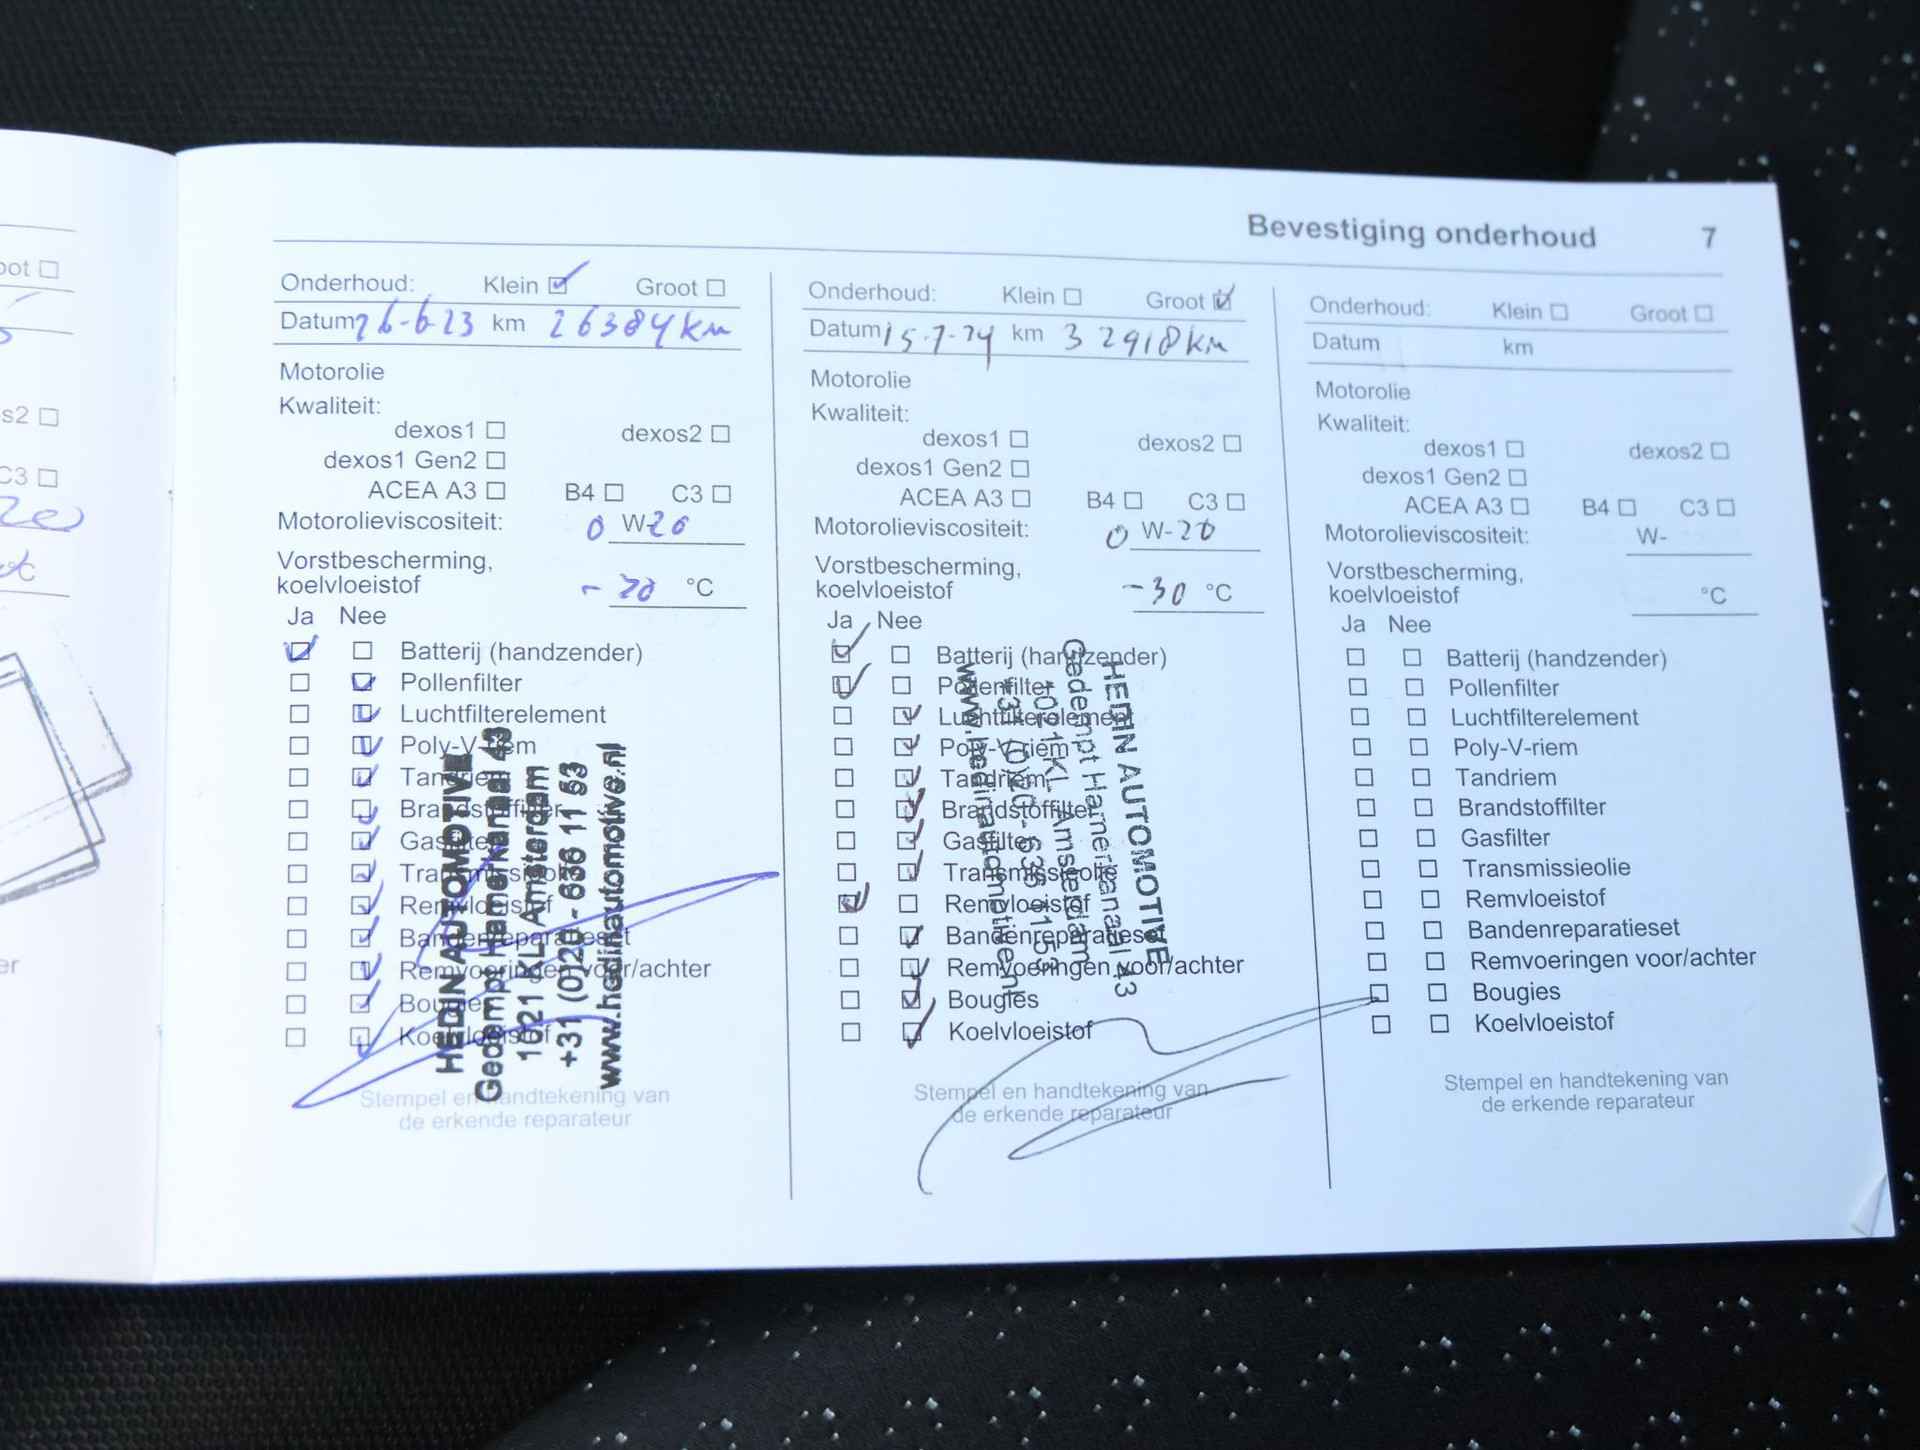 Bevestiging onderhoud 7
Onderhoud: Klein Groot
Datum 26-6-23 km 26384 km
Motorolie
Kwaliteit:
dexos1 dexos2
dexos1 Gen2
ACEA A3 B4 C3
Motorolieviscositeit: 0 W-20
Vorstbescherming,
koelvloeistof °C
Ja Nee
Batterij (handzender)
Pollenfilter
Luchtfilterelement
Poly-V-riem
Tandriem
Brandstoffilter
Gasfilter
Transmissieolie
Remvloeistof
Bandenreparatieset
Remvoeringen voor/achter
Bougies
Koelvloeistof
HEDIN AUTOMOTIVE
Gedempt Hamerkanaal 43
1021 KL Amsterdam
+31 (0)20 - 636 11 53
www.hedinautomotive.nl
Stempel en handtekening van
de erkende reparateur
Onderhoud: Klein Groot
Datum 15-7-24 km 32918 km
Motorolie
Kwaliteit:
dexos1 dexos2
dexos1 Gen2
ACEA A3 B4 C3
Motorolieviscositeit: 0 W-20
Vorstbescherming,
koelvloeistof -30 °C
Ja Nee
Batterij (handzender)
Pollenfilter
Luchtfilterelement
Poly-V-riem
Tandriem
Brandstoffilter
Gasfilter
Transmissieolie
Remvloeistof
Bandenreparatieset
Remvoeringen voor/achter
Bougies
Koelvloeistof
HEDIN AUTOMOTIVE
Gedempt Hamerkanaal 43
1021 KL Amsterdam
+31 (0)20 - 636 11 53
www.hedinautomotive.nl
Stempel en handtekening van
de erkende reparateur
Onderhoud: Klein Groot
Datum km
Motorolie
Kwaliteit:
dexos1 dexos2
dexos1 Gen2
ACEA A3 B4 C3
Motorolieviscositeit: W-
Vorstbescherming,
koelvloeistof °C
Ja Nee
Batterij (handzender)
Pollenfilter
Luchtfilterelement
Poly-V-riem
Tandriem
Brandstoffilter
Gasfilter
Transmissieolie
Remvloeistof
Bandenreparatieset
Remvoeringen voor/achter
Bougies
Koelvloeistof
Stempel en handtekening van
de erkende reparateur